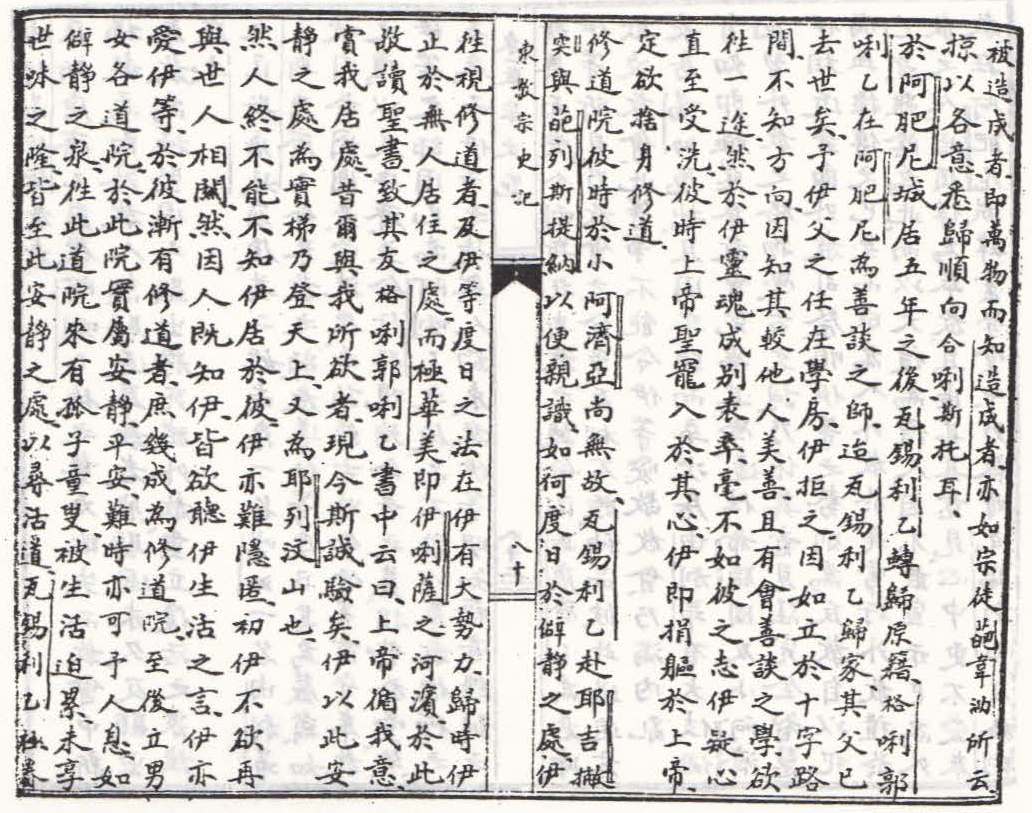 被造成者、即萬物而知造成者、亦如宗徒葩韋泐所云
掠以各意、悉歸順向合唎斯托耳、
於阿肥尼城居五年之後、瓦錫利乙轉歸原籍、格唎郭
唎乙在阿肥尼為善談之師、迨瓦錫利乙歸家其父已
去世矣、予伊父之任在學房、伊拒之、因如立於十字路
間、不知方向因知其較他人美善、且有會善談之學欲
徃一途、然於伊靈魂成別表率、毫不如彼之志伊疑心
直至受洗、彼時上帝聖寵入於其心、伊即捐軀於上帝、
定欲捨身修道、
修道院彼時於小阿濟亞尚無故、瓦錫利乙赴耶吉撇
突與葩列斯提納以便親識、如何度日於僻靜之處、伊
東教宗史記
八十
徃視修道者、及伊等度日之法在伊有大勢力歸時伊
止於無人居住之處、而極華美即伊唎薩之河濱於此
故讀聖書、致其友格唎郭唎乙書中云曰、上帝循我意、
賞我居處、昔爾與我所欲者、現今斯誠驗矣、伊以此安
靜之處、為實梯乃登天上、又為耶列汶山也、
然人終不能不知伊居於彼、伊亦難隱匿、初伊不欲再
與世人相關、然因人既知伊、皆欲聽伊生活之言、伊亦
愛伊等、於彼漸有修道者、庶幾成為修道院、至後立男
女各道院、於此院實屬安靜、平安、難時亦可予人息、如
僻靜之泉、徃此道院來有孤子童叟、被生活迫累、未享
世味之隆、皆至此安靜之處、以尋沽道、瓦錫利乙極眷